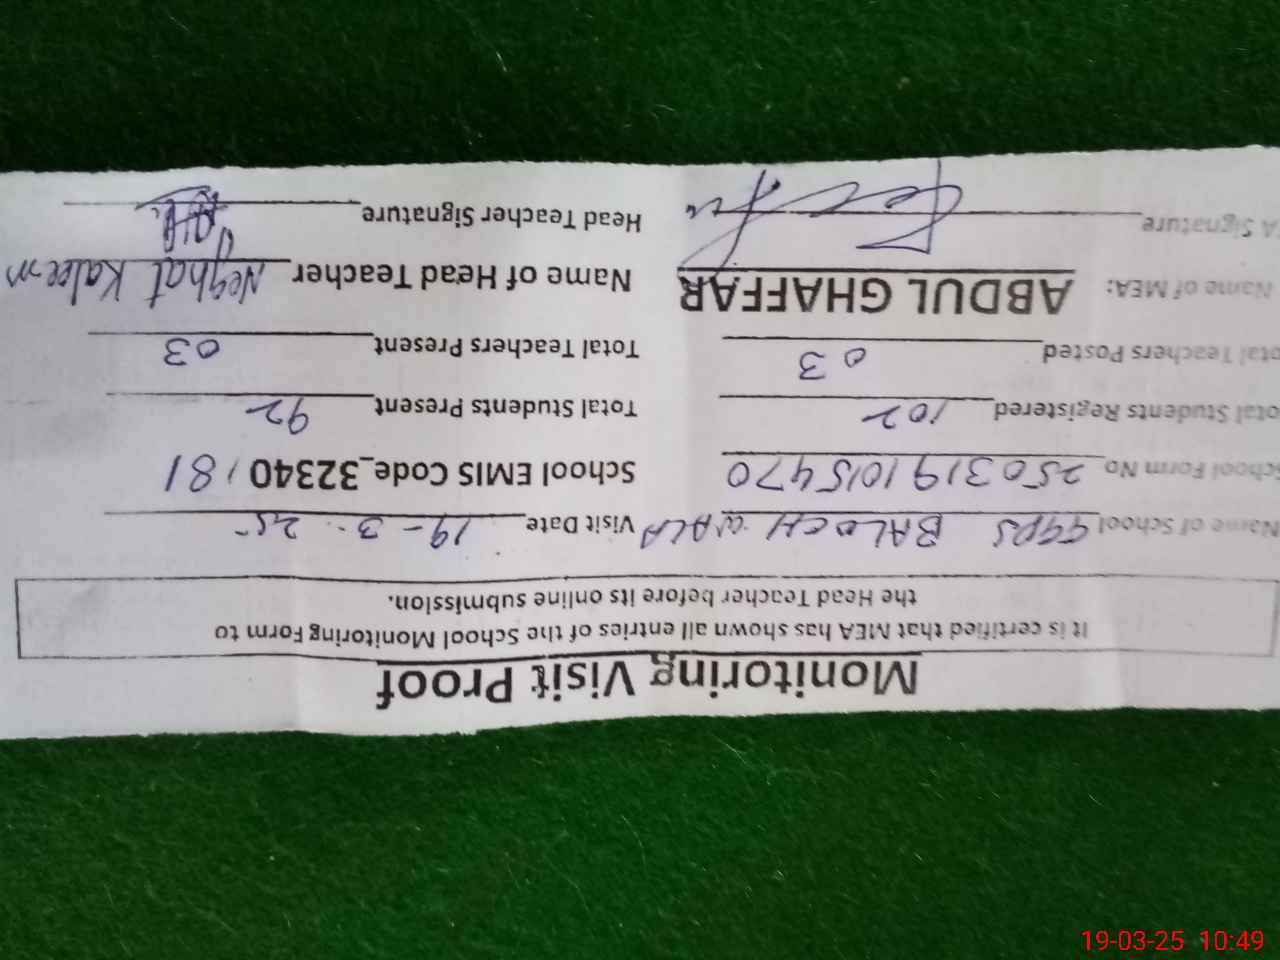 Monitoring Visit Proof
It is certified that MEA has shown all entries of the School Monitoring Form to
the Head Teacher before its online submission.
Name of School GGPS BALOCH WALA Visit Date 19-3-25
School Form No 250319105470 School EMIS Code_32340181
Total Students Registered 102 Total Students Present 92
Total Teachers Posted 03 Total Teachers Present 03
Name of MEA: ABDUL GHAFFAR Name of Head Teacher Neghat Kaleem
A Signature Head Teacher Signature
19-03-25 10:49